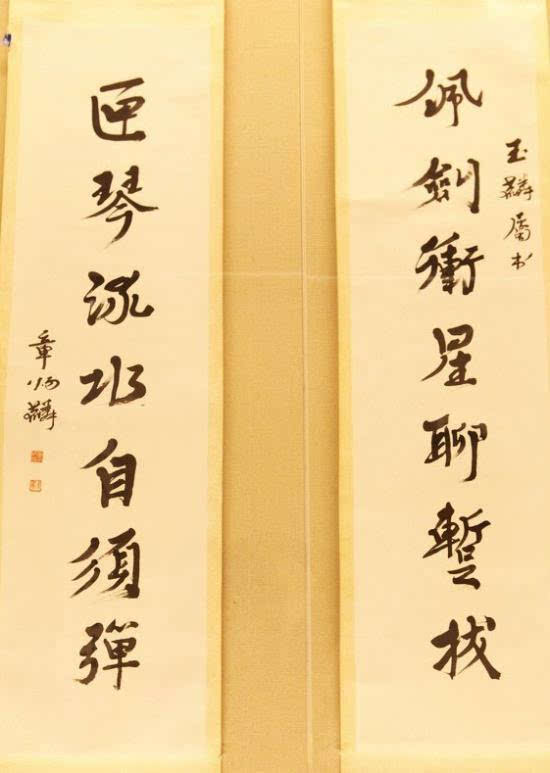 佩劍衝星聊暫拔
玉麟屬书
匣琴流水自須彈
章炳麟